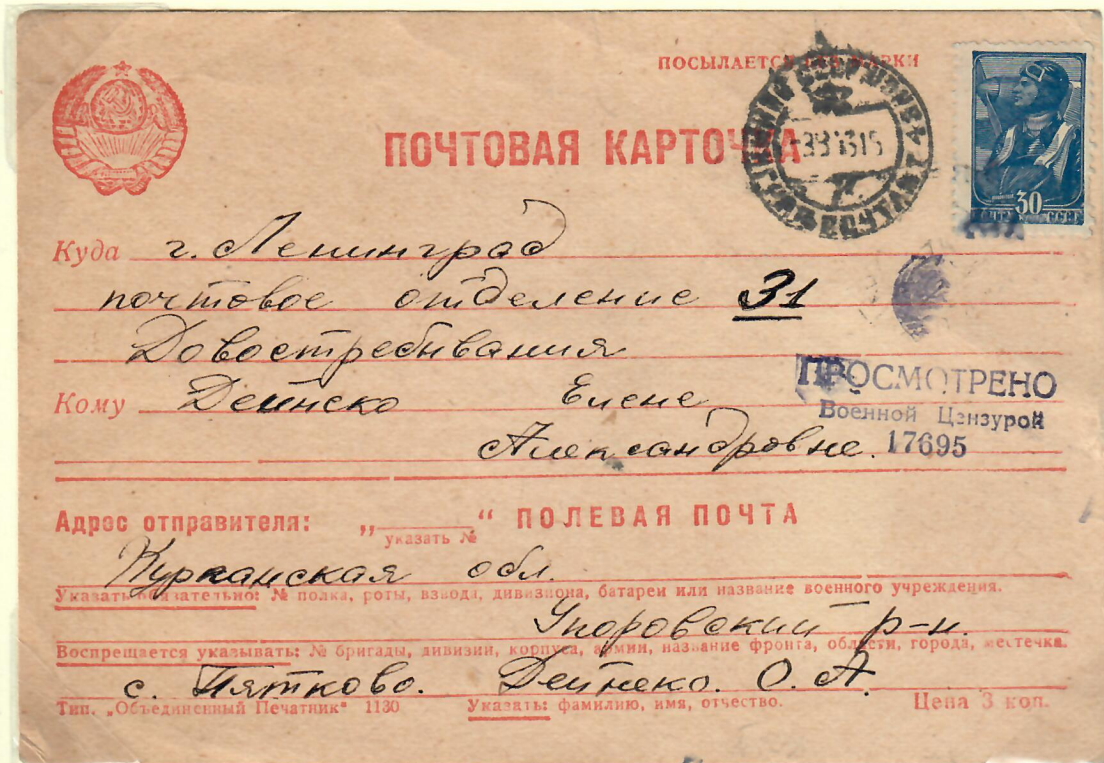 ПОСЫЛАЕТСЯ БЕЗ МАРКИ
ПОЧТОВАЯ КАРТОЧКА
30
ПОЧТА СССР
Куда г. Ленинград
почтовое отделение 31
Довостребывания
Кому Дейнеко Елене
Александровне.
ПРОСМОТРЕНО
Военной Цензурой
17695
Адрес отправителя: „ “ ПОЛЕВАЯ ПОЧТА
указать №
Курганская обл.
Указать обязательно: № полка, роты, взвода, дивизиона, батареи или название военного учреждения.
Упоровский р-н.
Воспрещается указывать: № бригады, дивизии, корпуса, армии, название фронта, области, города, местечка.
с. Пятково. Дейнеко. О. А.
Тип. „Объединенный Печатник“ 1130 Указать: фамилию, имя, отчество. Цена 3 коп.